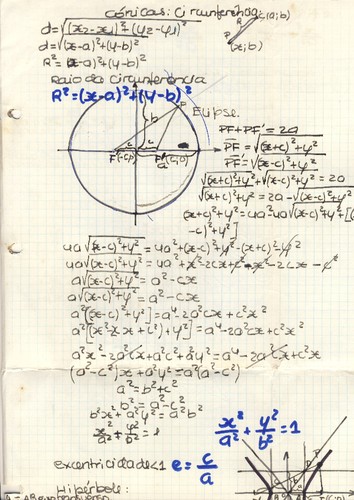 cónicas: Circunferência
d=√(x2-x1)²+(y2-y1)²
(a;b)
d=√(x-a)²+(y-b)²
(x;y)
R²=(x-a)²+(y-b)²
Raio da circunferência
R²=(x-a)²+(y-b)²
Elipse.
PF+PF'=2a
PF=√(x+c)²+y²
PF'=√(x-c)²+y²
√(x+c)²+y²+√(x-c)²+y²=2a
√(x+c)²+y²=2a-√(x-c)²+y²
(x+c)²+y²=4a²-4a√(x-c)²+y²+[(x
-c)²+y²]
4a√(x-c)²+y²=4a²+(x-c)²+y²-(x+c)²-y²
4a√(x-c)²+y²=4a²+x²-2cx+c²-x²-2cx-c²
a√(x-c)²+y²=a²-cx
a√(x-c)²+y²=a²-cx
a²[(x-c)²+y²]=a⁴-2a²cx+c²x²
a²x²-2a²cx+a²c²+a²y²=a⁴-2a²cx+c²x
(a²-c²)x+a²y²=a²(a²-c²)
a²=b²+c²
b²=a²-c²
b²x²+a²y²=a²b²
x²/a²+y²/b²=1
x²/a²+y²/b²=1
excentricidade<1 e=c/a
Hipérbole: